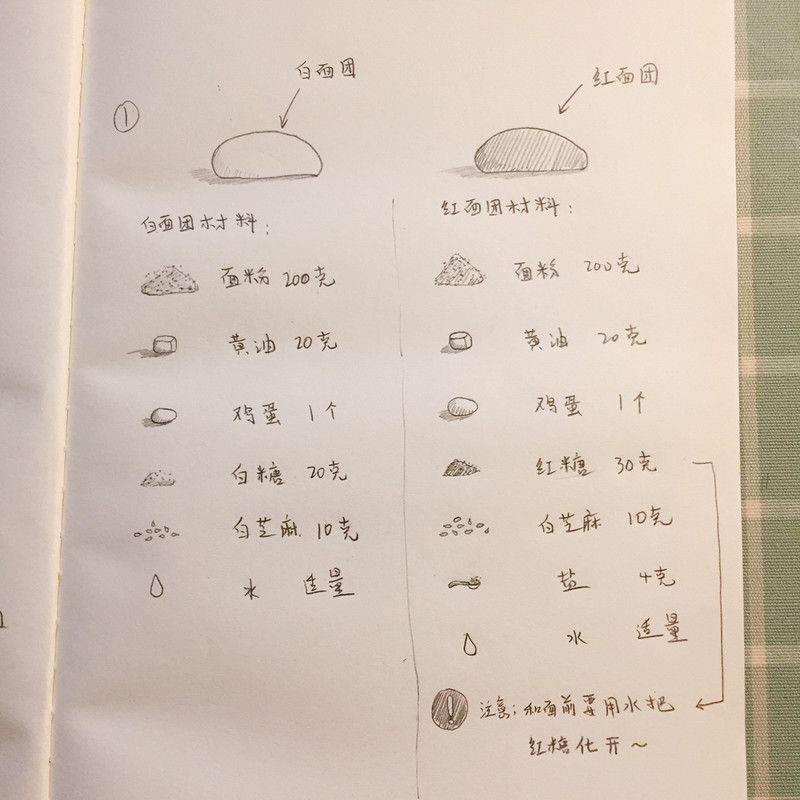 ①
白面团
红面团
白面团材料:
面粉 200克
黄油 20克
鸡蛋 1个
白糖 20克
白芝麻 10克
水 适量
红面团材料:
面粉 200克
黄油 20克
鸡蛋 1个
红糖 30克
白芝麻 10克
盐 4克
水 适量
! 注意:和面前要用水把
红糖化开~